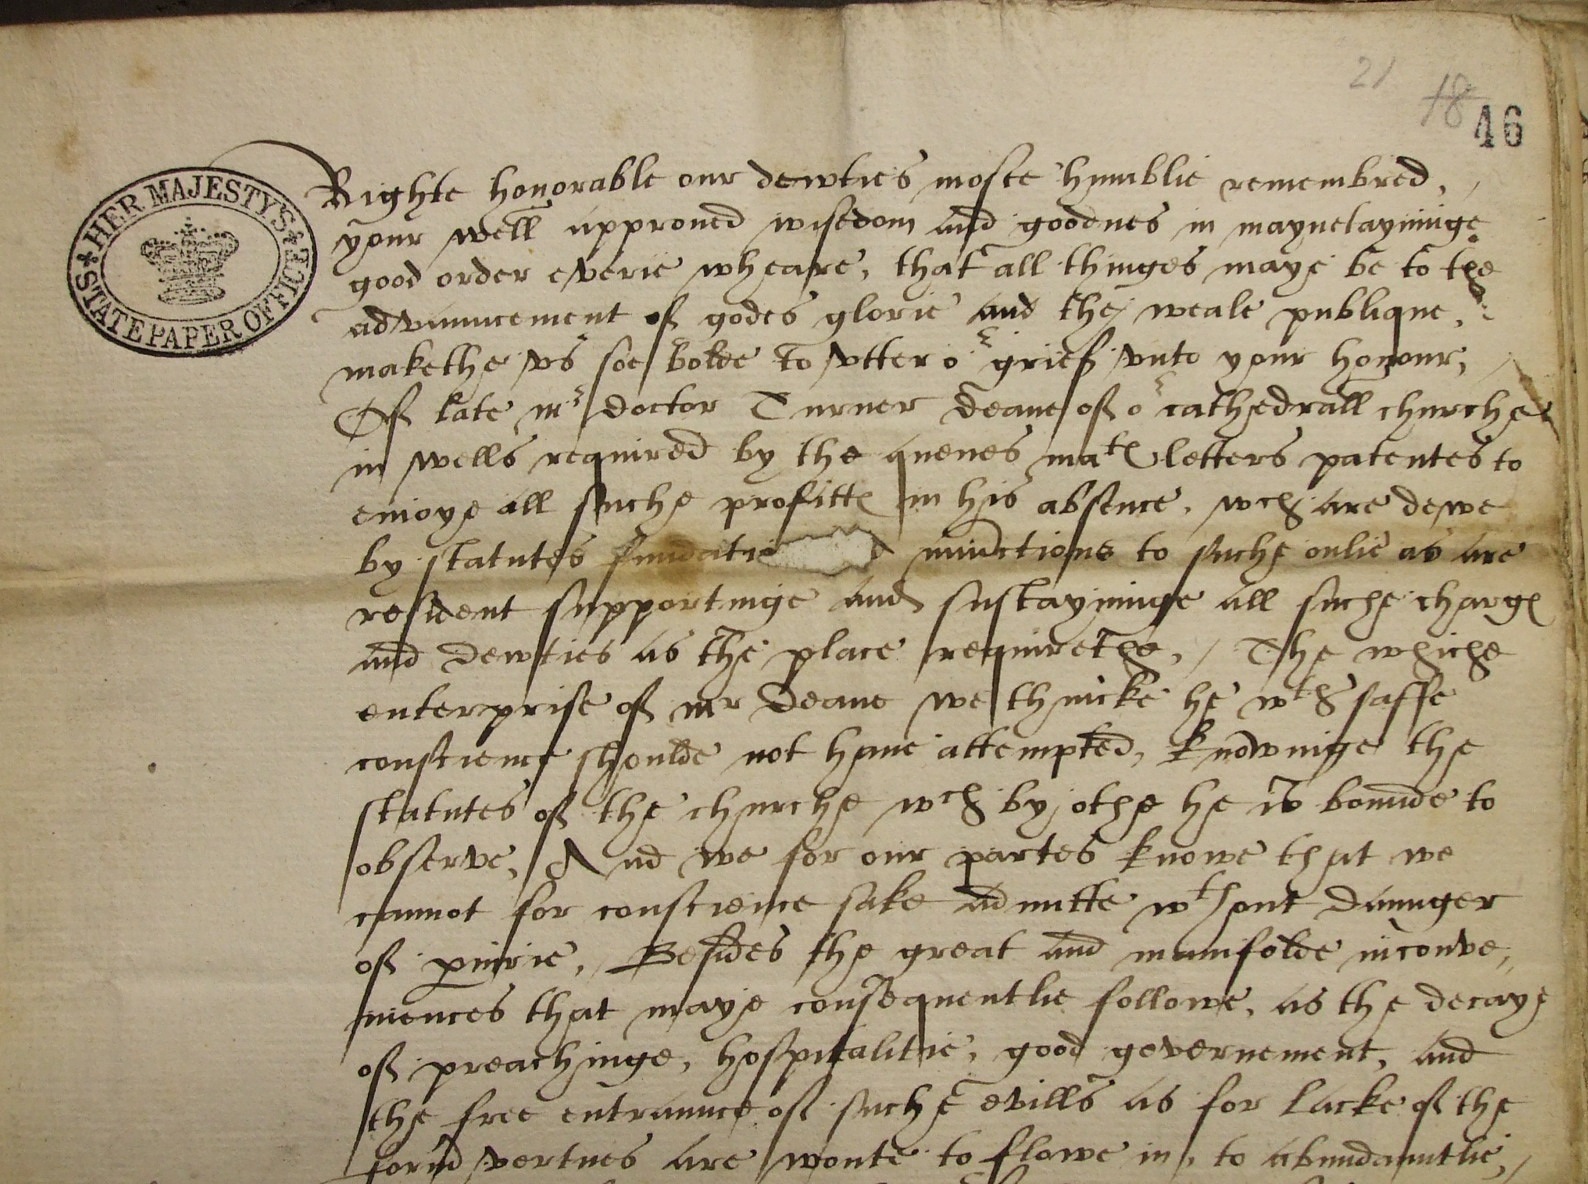 21
18
46
HER MAJESTY'S
STATE PAPER OFFICE
Righte honorable our dewties moste humblie remembred,
your well approued wisedom and goodnes in mayntayninge
good order everie wheare, that all thinges maye be to the
advauncement of godes glorie and the weale publique,
makethe vs soe bolde to vtter or grief vnto your honour,
Of late mr doctor Turner deane of or cathedrall churche
in wells required by the quenes matꝭ letters patentes to
enioye all suche profittꝭ in his absence, wch are dewe
by statutes fundatio iniunctions to suche onlie as are
resident supportinge and sustayninge all suche chargꝭ
and dewties as the place requirethe, / The whiche
enterprise of mr Deane we thincke he wth saffe
conscience shoulde not haue attempted, knowinge the
statutes of the churche wch by othe he is bounde to
observe, And we for our partes knowe that we
cannot for conscience sake admitte wthout daunger
of piurie, Besides the great and manifolde inconve,,
niences that maye consequentlie followe, as the decaye
of preachinge, hospitalitie, good governement, and
the free entraunce of suche evills as for lacke of the
forsd vertues are wonte to flowe in, to abundauntlie, /